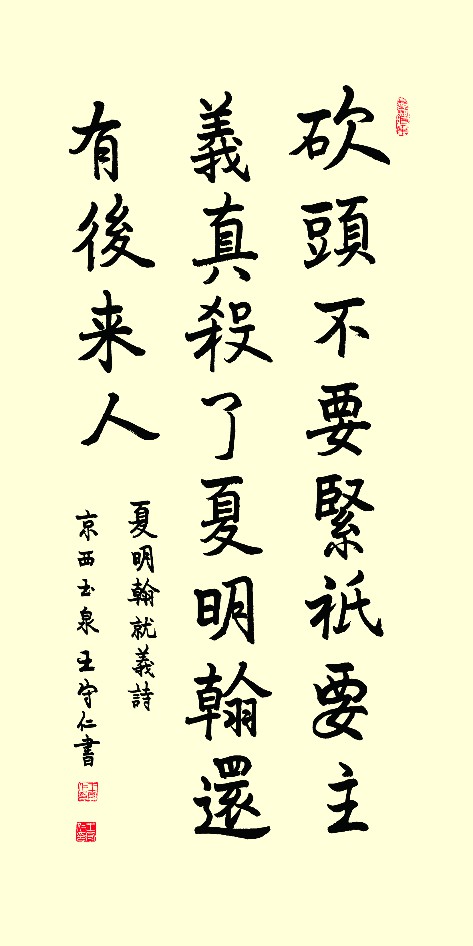 砍頭不要緊祇要主
義真殺了夏明翰還
有後来人
夏明翰就義詩
京西玉泉王守仁書